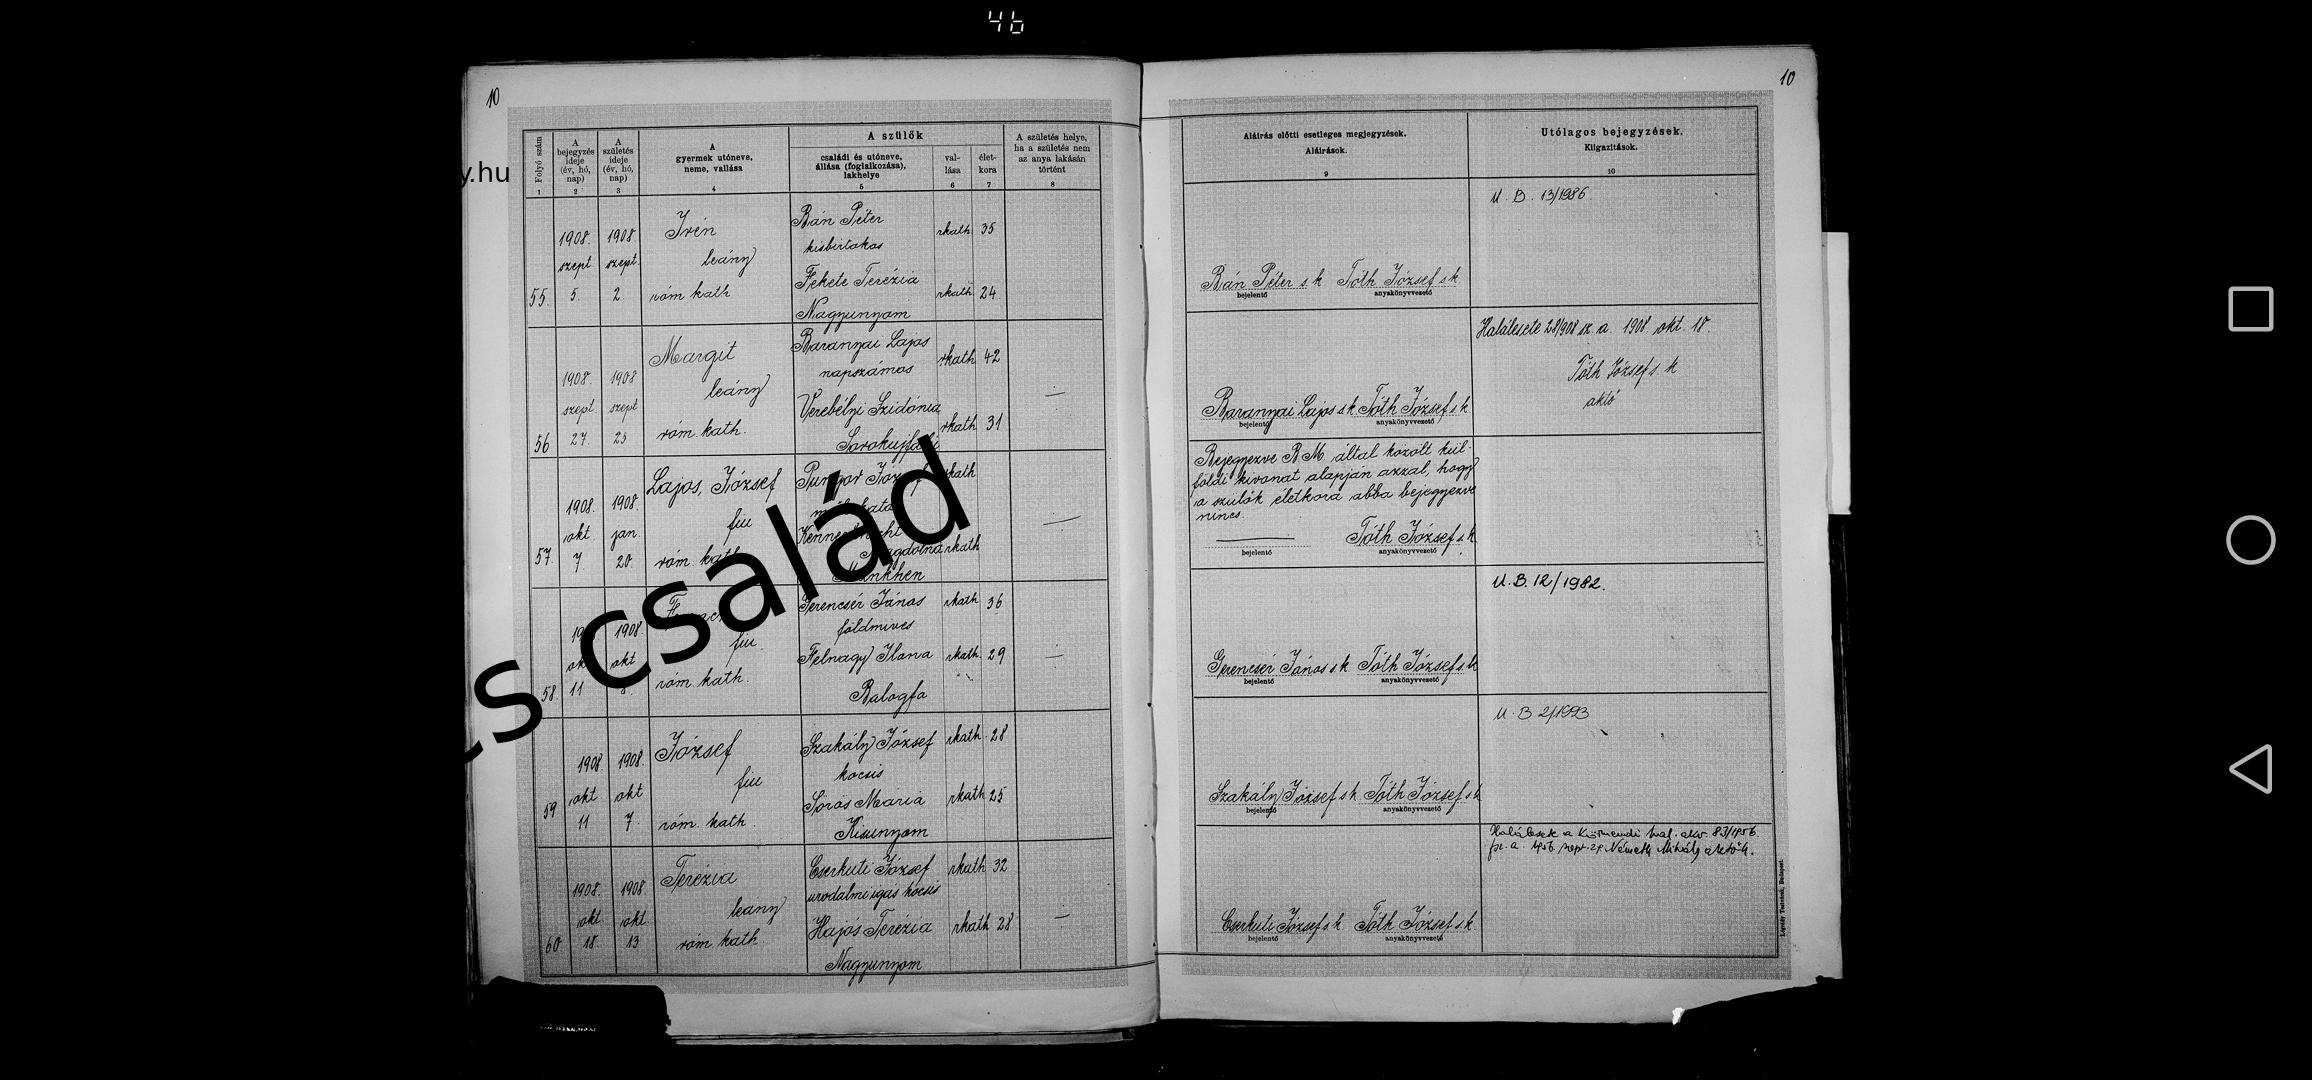 46
10
10
y.hu
Folyó szám
A bejegyzés ideje (év, hó, nap)
A születés ideje (év, hó, nap)
A gyermek utóneve, neme, vallása
A szülők
családi és utóneve, állása (foglalkozása), lakhelye
val-lása
élet-kora
A születés helye, ha a születés nem az anya lakásán történt
Aláírás előtti esetleges megjegyzések.
Aláírások.
Utólagos bejegyzések.
Kiigazítások.
1 2 3 4 5 6 7 8 9 10
55.
1908. szept 5.
1908 szept. 2
Irén
leány
róm. kath
Bán Péter
kisbirtokos
rkath 35
Fekete Terézia
rkath 24
Nagyunyom
Bán Péter s.k Tóth József s k
bejelentő anyakönyvvezető
U. B. 13/1986
56
1908. szept. 27.
1908 szept 23
Margit
leány
róm. kath.
Baranyai Lajos
napszámos
rkath 42
Verebélyi Szidónia
rkath 31
Baranyai Lajos s k Tóth József s k
bejelentő anyakönyvvezető
Halálesete 28/908 sz. a. 1908 okt. 18.
Tóth József s. k
57.
1908. okt 7.
1908. jan. 20.
Lajos, József
fiu
róm. kath
rkath
Magdolna rkath
Münkhen
Bejegyezve B. M. által közölt kül-
földi kivonat alapján azzal, hogy
a szülők életkora abba bejegyezve
nincs.
Tóth József s. k
bejelentő anyakönyvvezető
58.
okt 11
1908. okt 8.
fiu.
róm. kath.
Gerencsér János
földmives
rkath 36
Felnagy Ilona
rkath. 29
Balogfa
Gerencsér János s k Tóth József s k
bejelentő anyakönyvvezető
U. B. 12/1982.
59
1908 okt 11
1908. okt 7.
József
fiu
róm. kath.
Szakály József
kocsis
rkath. 28
Soros Mária
rkath 25
Kisunyom
Szakály József s k Tóth József s k
bejelentő anyakönyvvezető
U. B 2/1993
60
1908. okt 18.
1908 okt 13
Terézia
leány
róm kath
Cserkuti József
urodalmi igás kocsis
rkath 32
Hajós Terézia
rkath 28
Nagyunyom
Cserkuti József s k Tóth József s. k.
bejelentő anyakönyvvezető
Halálesete a Körmendi hal. akv. 83/1956.
fsz. a. 1956. szept. 27. Németh Mihály
Légrády Testvérek, Budapest.
család